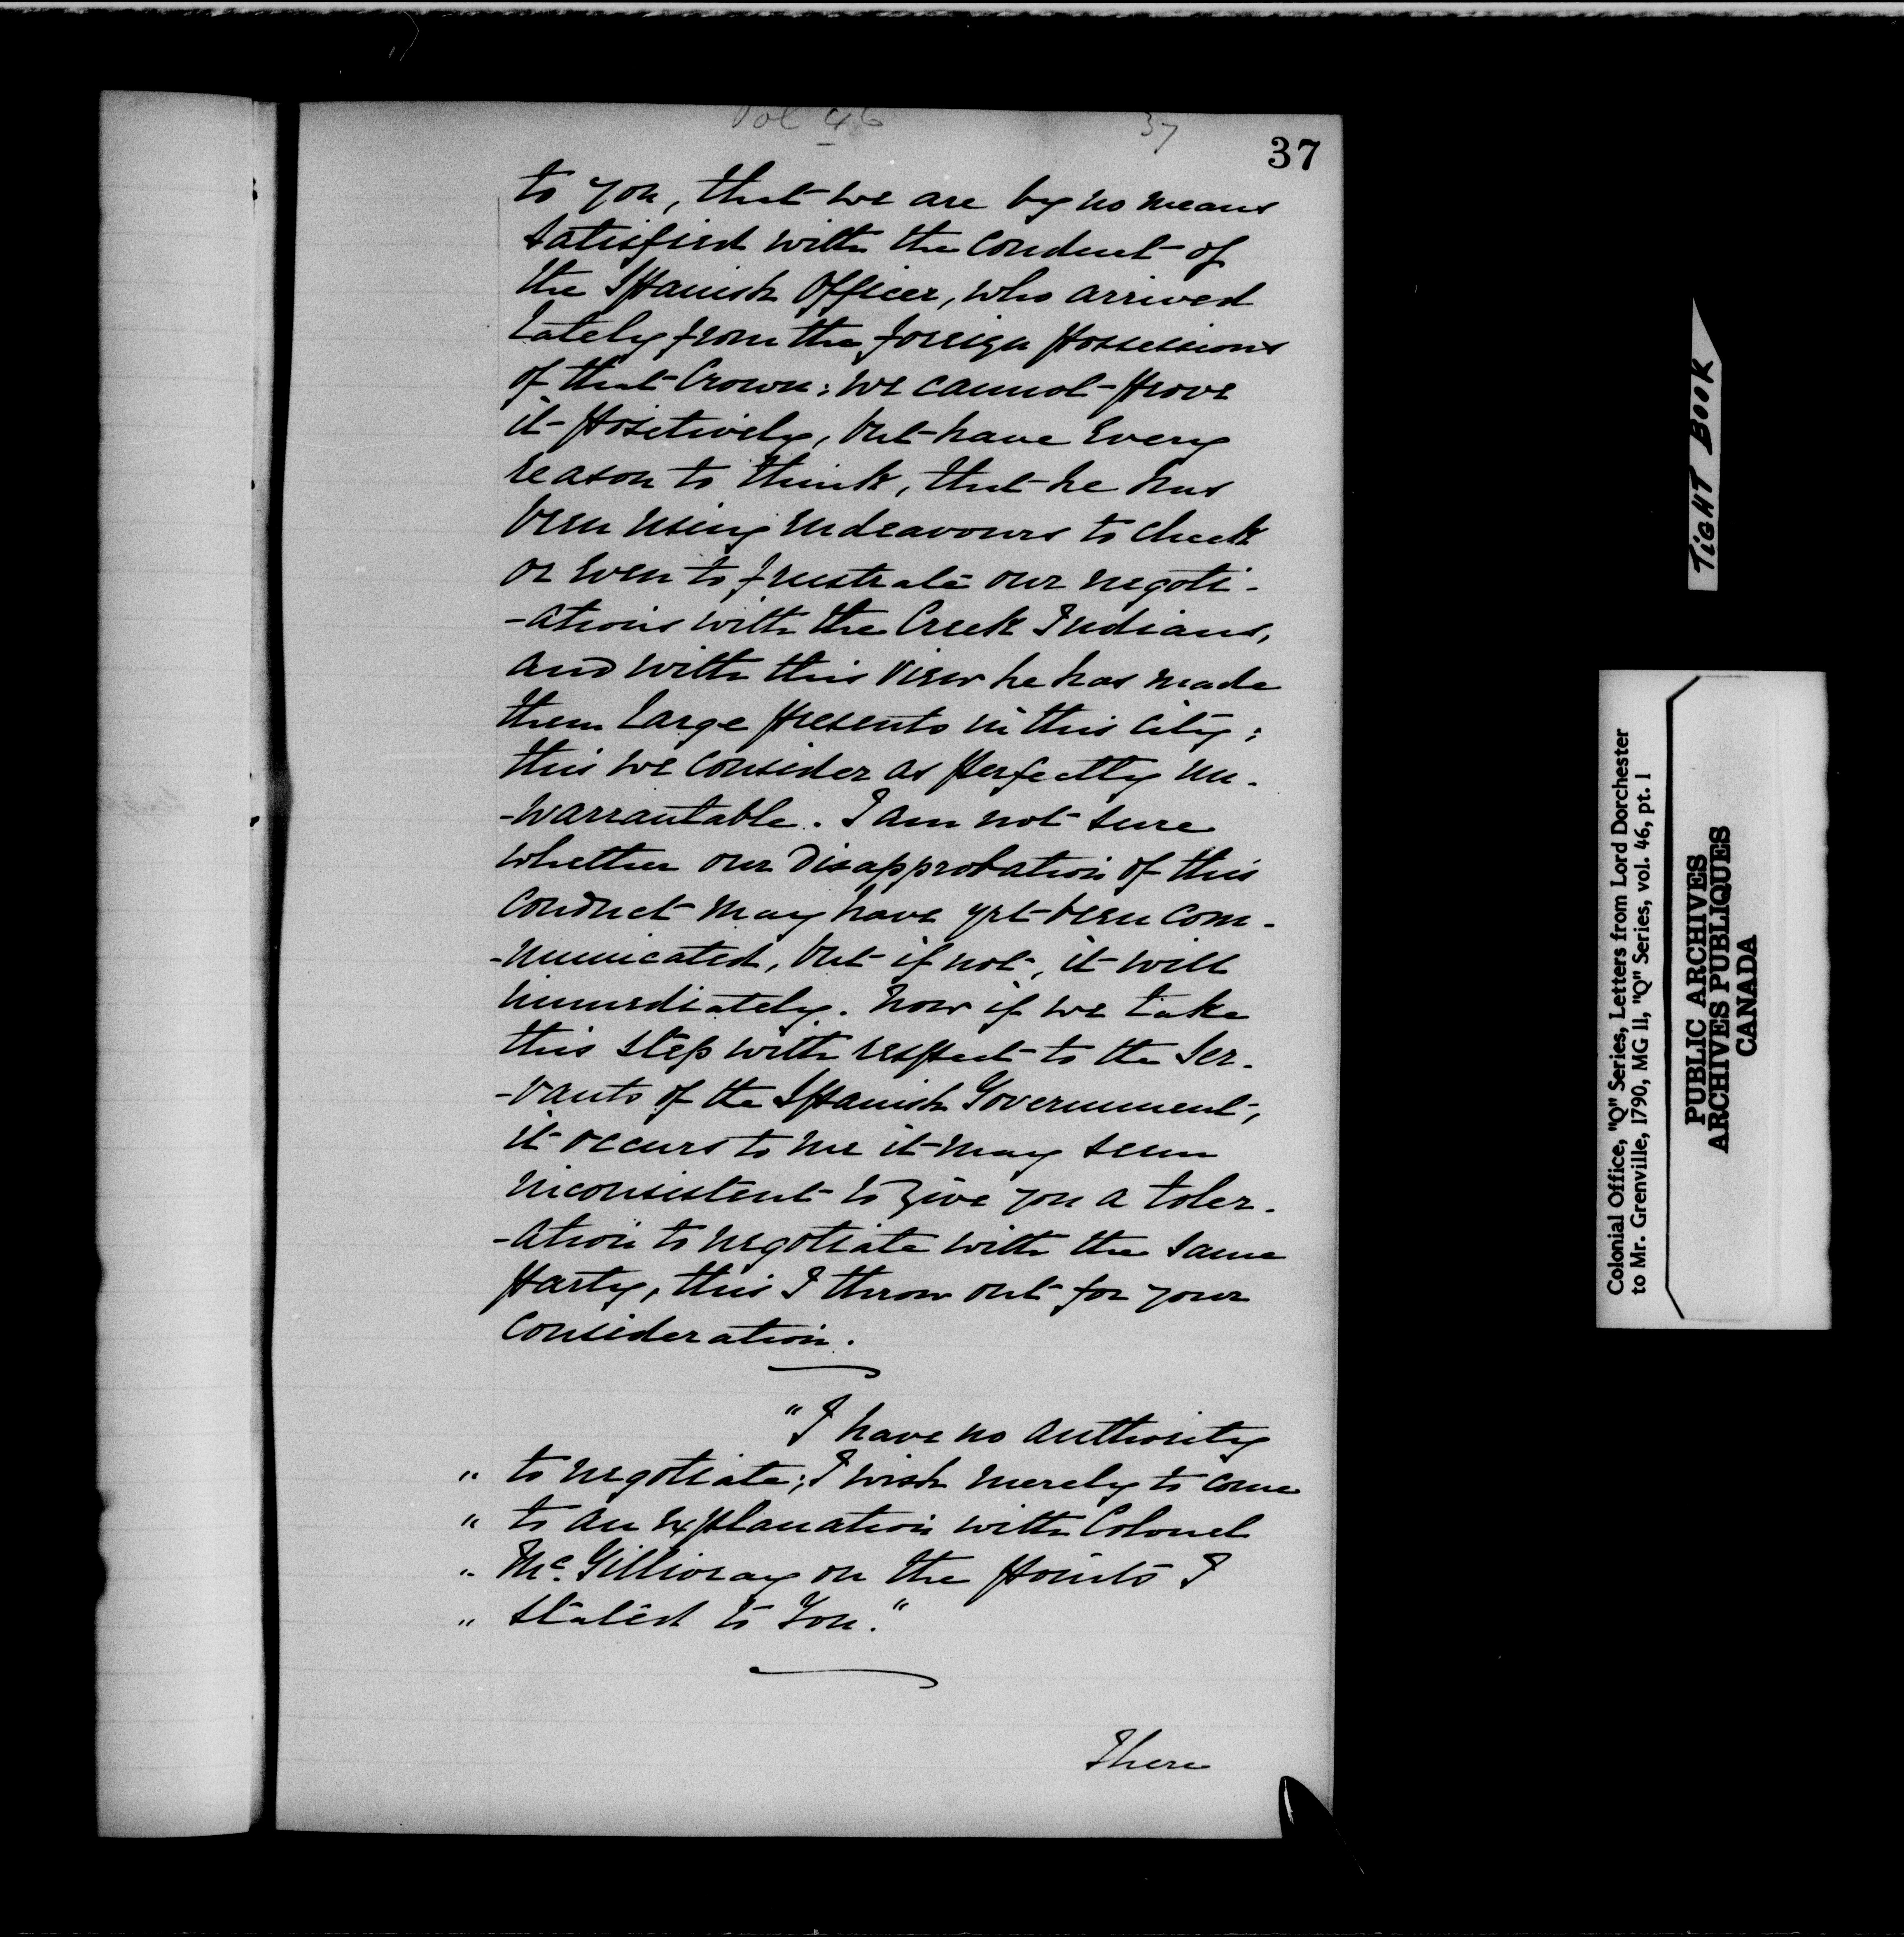 Vol 46
37
37
to you, that we are by no means
satisfied with the conduct of
the Spanish Officer, who arrived
lately from the foreign possessions
of that Crown: we cannot prove
it positively, but have every
reason to think, that he has
been using endeavours to check
or even to frustrate our negoti-
-ations with the Creek Indians,
and with this view he has made
them large presents in this City;
this we consider as perfectly un-
-warrantable. I am not sure
whether our Disapprobation of this
conduct may have yet been com-
-municated, but if not, it will
immediately. Now if we take
this step with respect to the Ser-
-vants of the Spanish Government,
it occurs to me it may seem
inconsistent to give you a toler-
-ation to negotiate with the same
party, this I throw out for your
consideration.
"I have no authority
" to negotiate; I wish merely to come
" to an explanation with Colonel
" McGillivray on the points I
" stated to You."
There
TIGHT BOOK
Colonial Office, "Q" Series, Letters from Lord Dorchester
to Mr. Grenville, 1790, MG 11, "Q" Series, vol. 46, pt. 1
PUBLIC ARCHIVES
ARCHIVES PUBLIQUES
CANADA